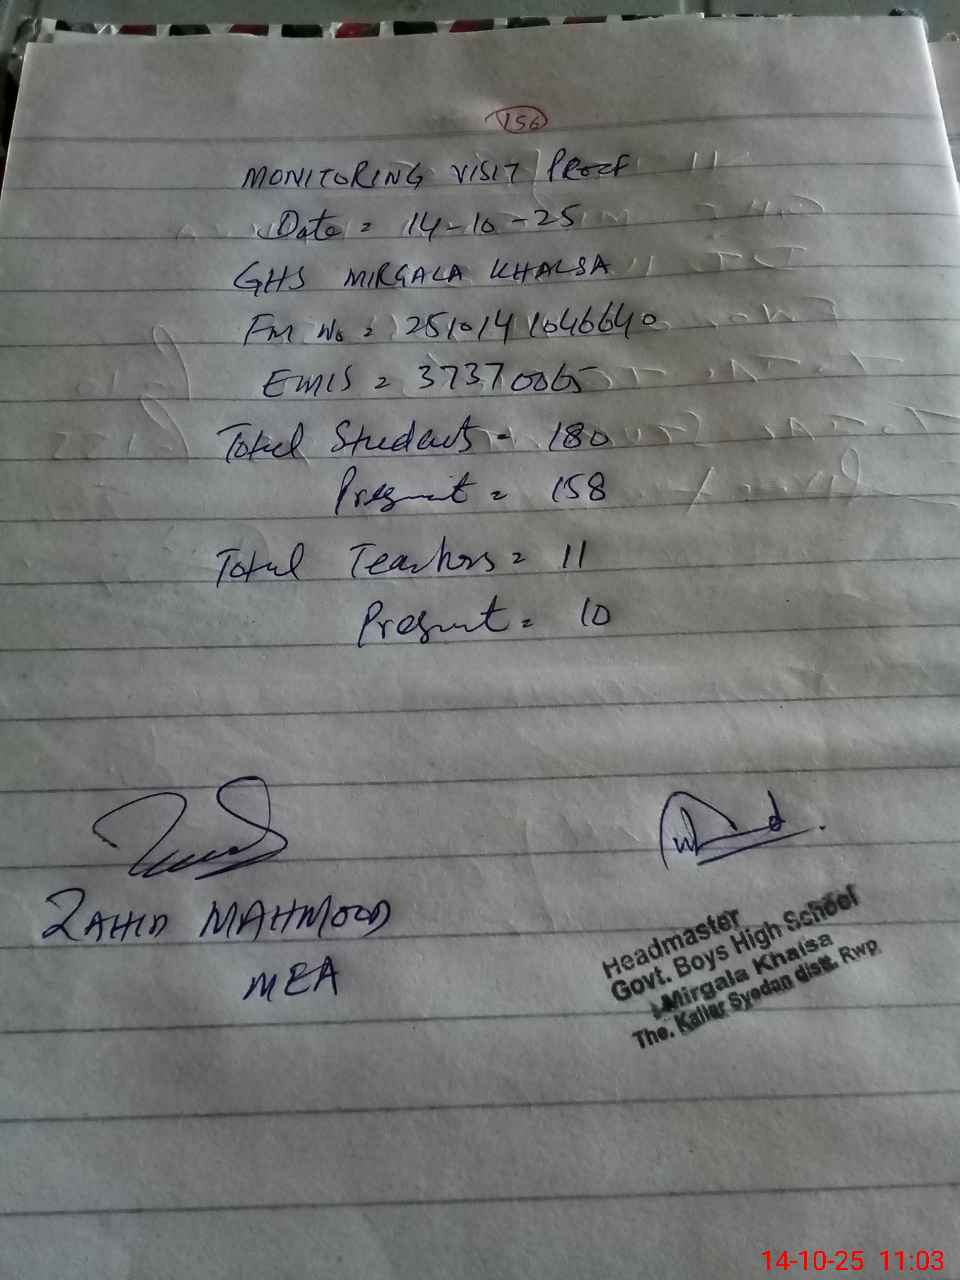 156
MONITORING VISIT PROOF
Date = 14-10-25
GHS MIRGALA KHALSA
Fm No = 2510141046640
EMIS = 37370065
Total Students = 180
Present = 158
Total Teachers = 11
Present = 10
ZAHID MAHMOOD
MEA
Headmaster
Govt. Boys High School
Mirgala Khalsa
The. Kallar Syedan distt. Rwp
14-10-25 11:03